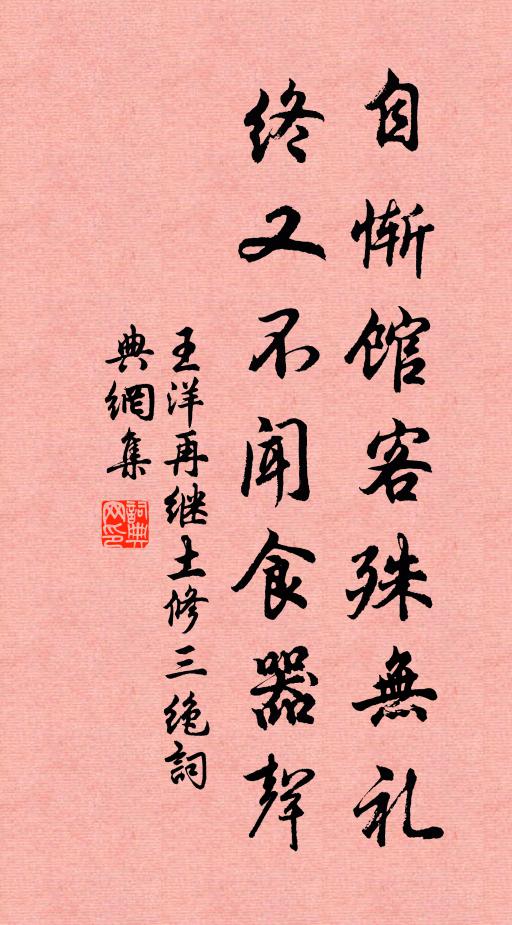 自惭馆客殊無礼
终又不闻食器聲
王洋再继土修三绝詞
典網集
詞典网印